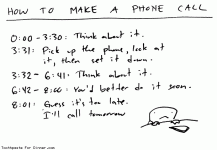 HOW TO MAKE A PHONE CALL
0:00 - 3:30: Think about it.
3:31: Pick up the phone, look at
it, then set it down.
3:32 - 6:41: Think about it.
6:42 - 8:00: You'd better do it soon.
8:01: Guess it's too late.
I'll call tomorrow
Toothpaste For Dinner.com